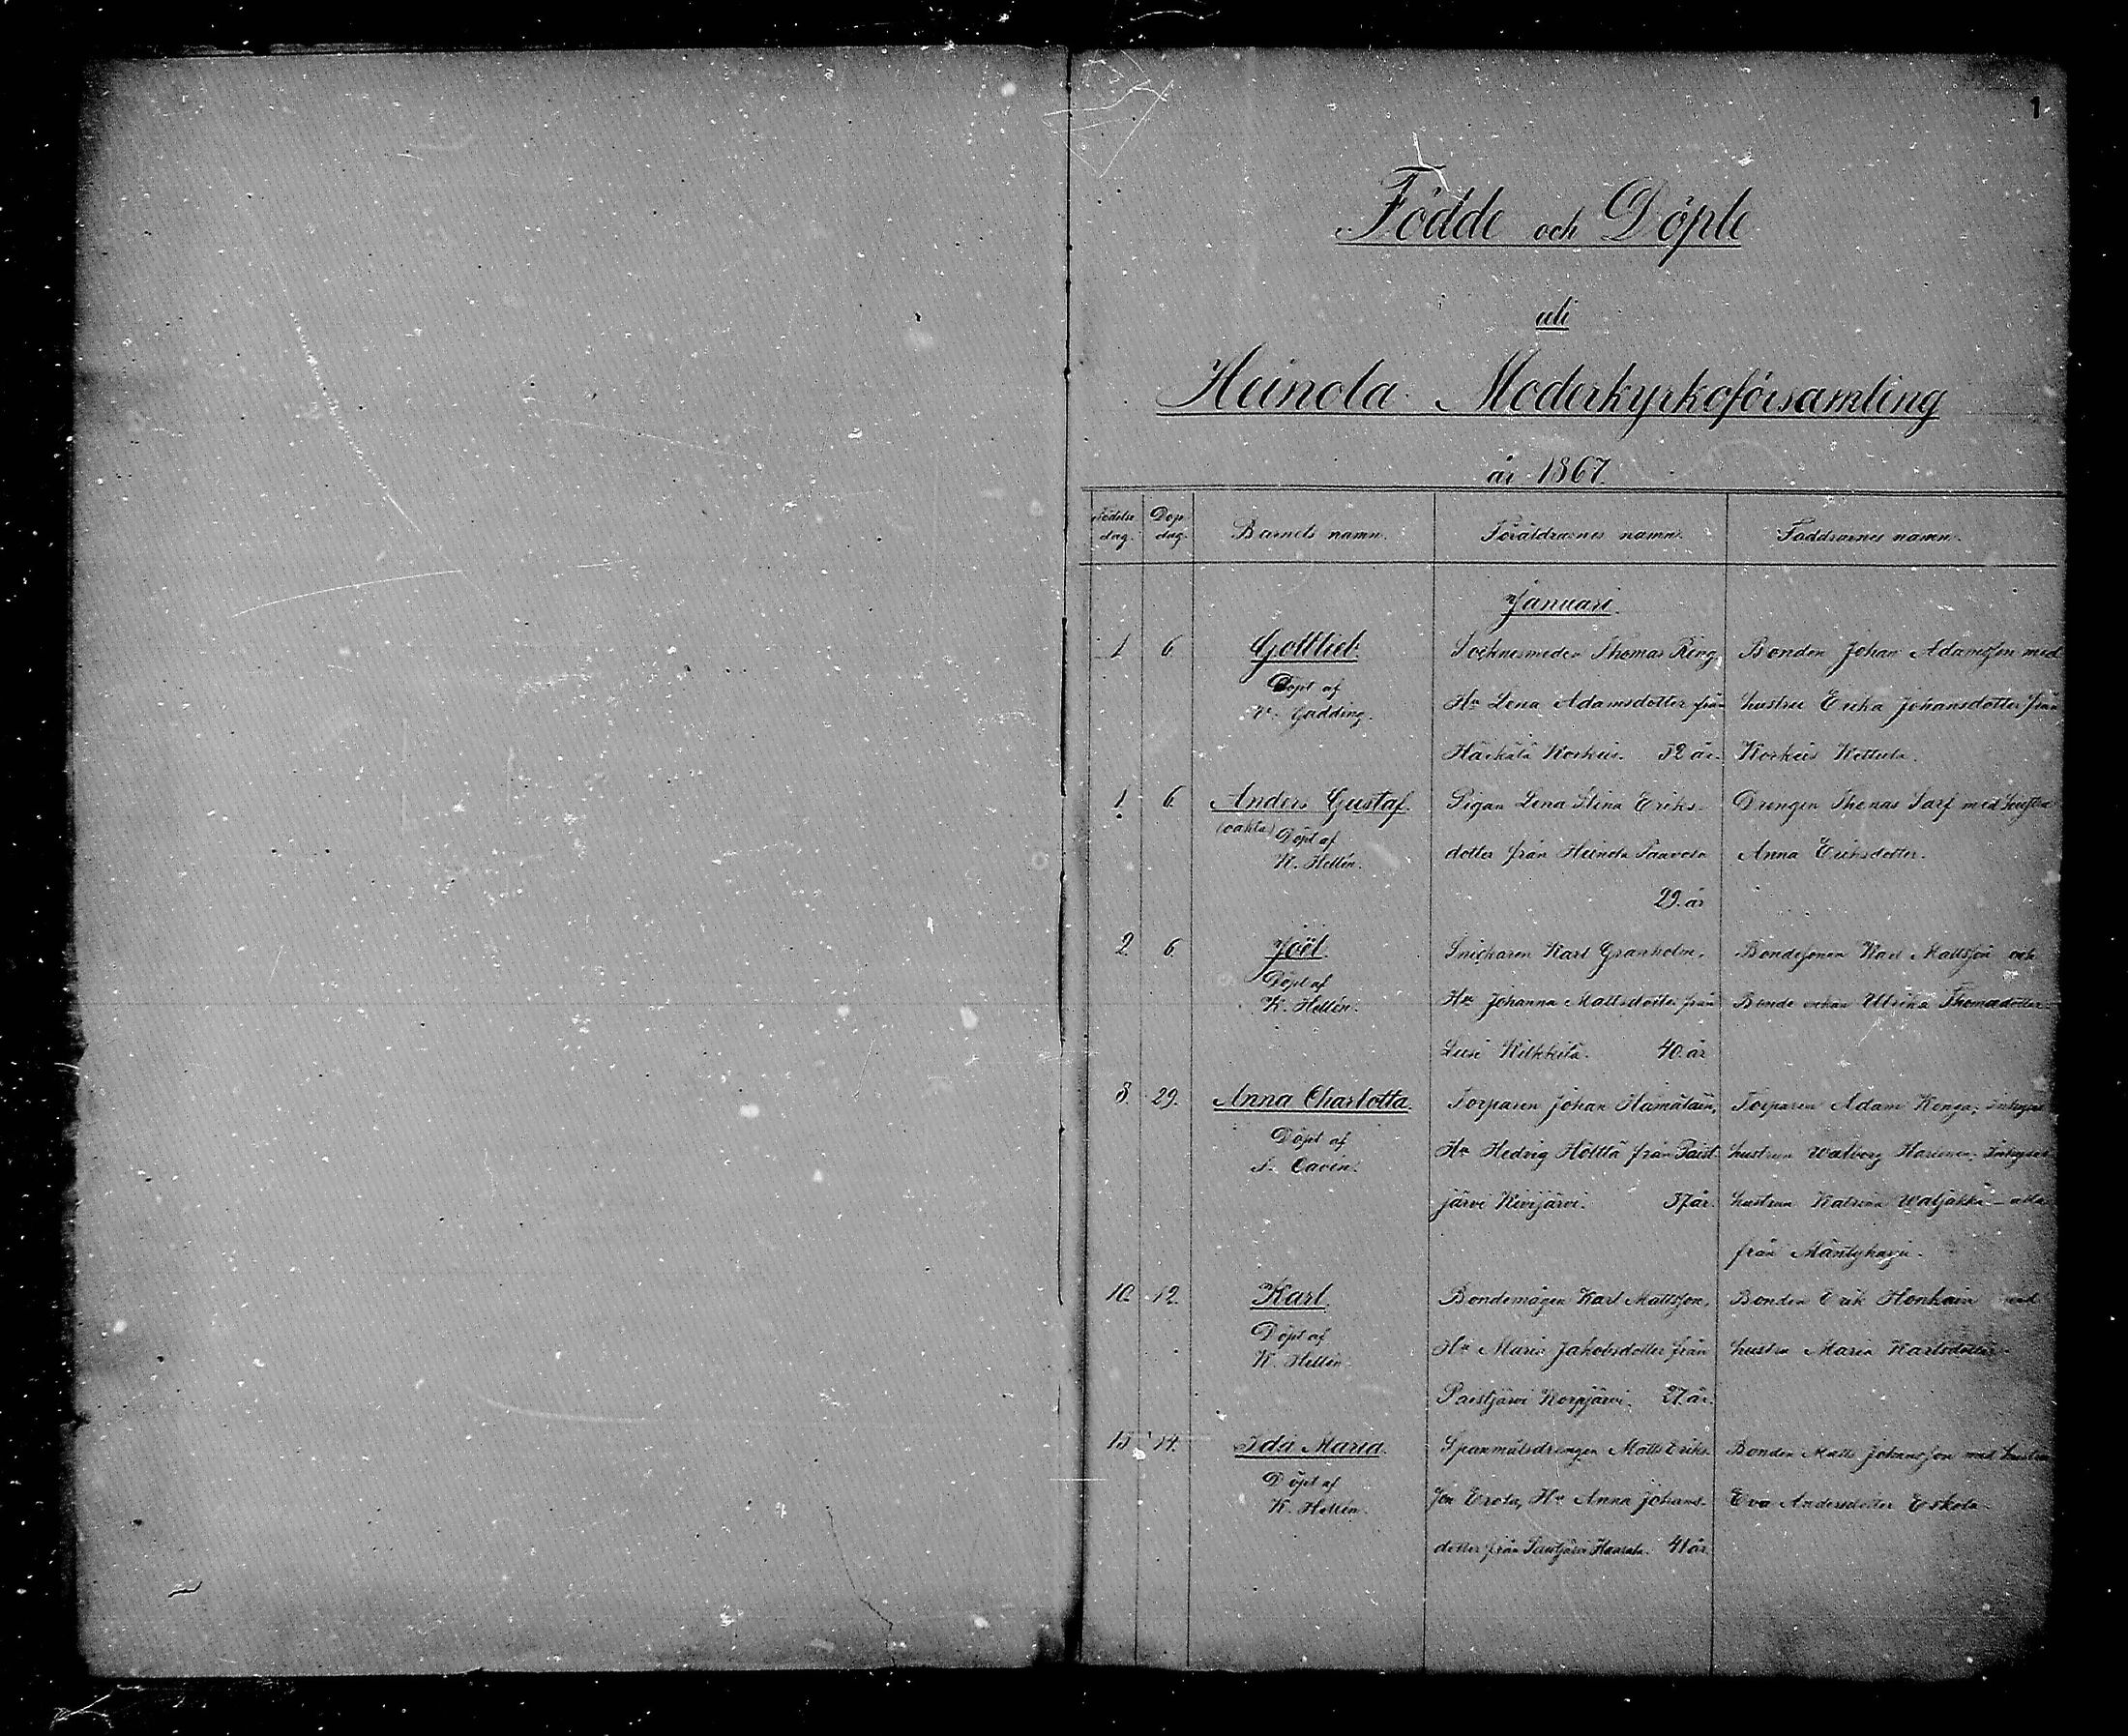 1
Födde och Döpte
uti
Heinola Moderkyrkoförsamling
år 1867.
Födelse dag. Dop dag. Barnets namn. Föräldrarnes namn. Faddrarnes namn.
Januari
1 6. Gottlieb Socknesmeden Thomas Ring, Bonden Johan Adamsson med
Döpt af
V. Gadding. Hu Lena Adamsdotter från hustru Erika Johansdotter från
Härkälä Korkeis. 32 år. Korkeis Kettula.
1. 6. Anders Gustaf. Pigan Lena Stina Eriks- Drengen Thomas Sarf med hustru
(oäkta) Döpt af
K. Hellén. dotter från Heinola Paavola Anna Eriksdotter.
29. år
2. 6. Joël. Snickaren Karl Granholm, Bondesonen Karl Mattsson och
Döpt af
K. Hellén. Hu Johanna Mattsdotter från Bonde enkan Ulrika Thomasdotter
Lusi Kilkkilä. 40. år
8. 29. Anna Charlotta. Torparen Johan Hämäläin, Torparen Adam Kenga; Inhyses
Döpt af
S. Cavén. Hu Hedvig Hölttä från Paist- hustrun Walborg Harinen; Inhyses
järvi Kivijärvi. 37 år. hustrun Katrina Waljakka – alla
från Mäntyharju.
10. 12. Karl. Bondemågen Karl Mattsson, Bonden Erik Honkain med
Döpt af
K. Hellén. Hu Maria Jakobsdotter från hustru Maria Karlsdotter
Paistjärvi Korpjärvi. 27. år.
14. Ida Maria. Spanmålsdrengen Matts Eriks- Bonden Matts Johansson med hustru
Döpt af
K. Hellén. son Erola, Hu Anna Johans- Eva Andersdotter Eskola
dotter från Paistjärvi 41 år